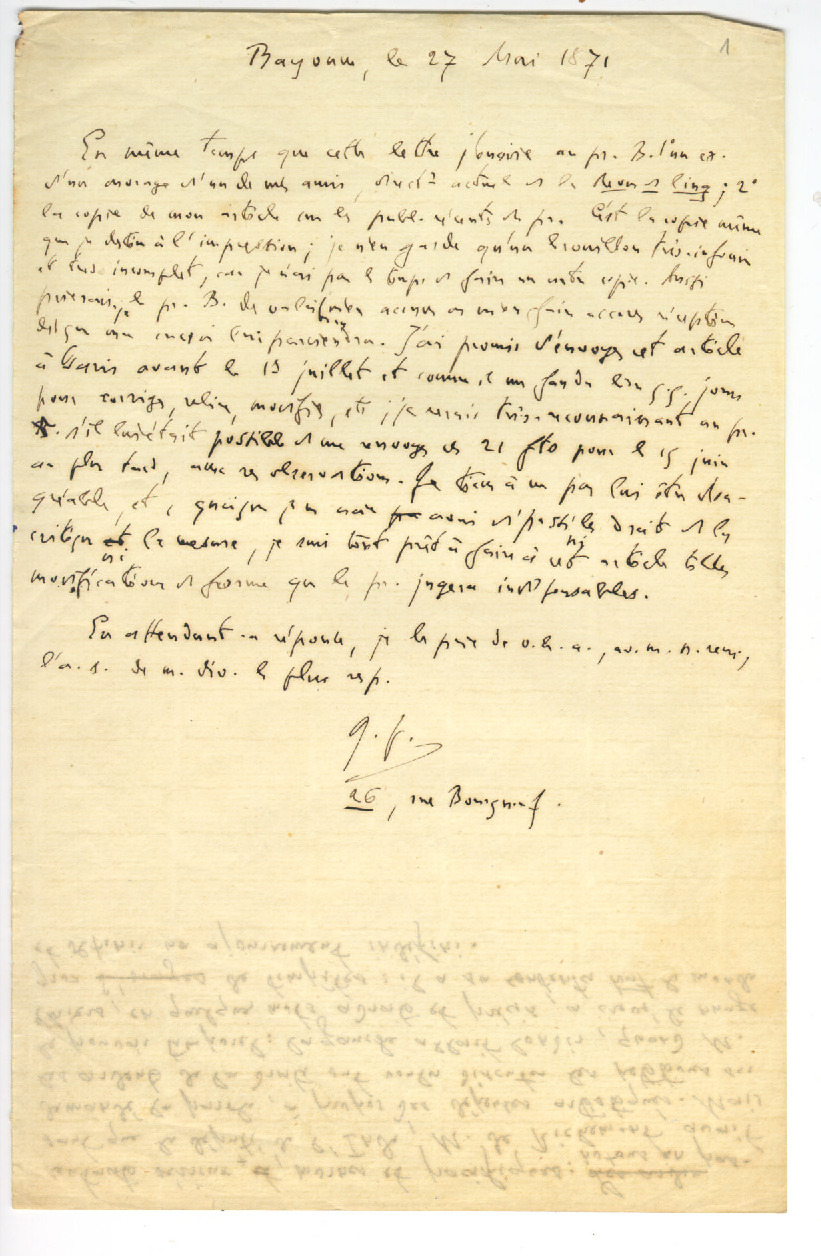 1
Bayonne, le 27 Mai 1871
En même temps que cette lettre j'envoie au pr. B. 1° un ex.
d'un ouvrage d'un de mes amis, direct.r actuel de la Revue de ling; 2°
la copie de mon article sur les publ. récents du pr. C'est la copie même
que je destine à l'impression; je n'en garde qu'un brouillon très-informe
et très incomplet, car je n'ai pas le temps de faire une autre copie. Aussi
prierais-je le pr. B. de vouloir bien accuser ou m'en faire accuser réception
dès que mon envoi lui parviendra. J'ai promis d'envoyer cet article
à Paris avant le 15 juillet et comme il me faudra bien qq. jours
pour corriger, relire, modifier, etc je serais très-reconnaissant au pr.
B. s'il lui était possible de me renvoyer ces 21 fto pour le 15 juin
au plus tard, avec ses observations. Je tiens à ne pas lui être désa-
gréable, et, quoique je ne crois pas avoir dépassé le droit de la
critique ni la mesure, je suis tout prêt à faire à cet article telles
modifications de forme que le pr. jugera indispensables.
En attendant sa réponse, je le prie de v. b. a., av. m. s. rem.,
l'a. s. de m. div. le plus resp.
26, rue Bourgneuf.